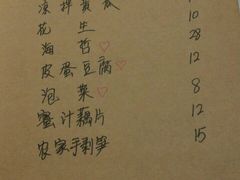 凉拌黄瓜
花生 10
海哲♡ 28
皮蛋豆腐♡ 12
泡菜♡ 8
蜜汁藕片 12
农家手剥笋 15